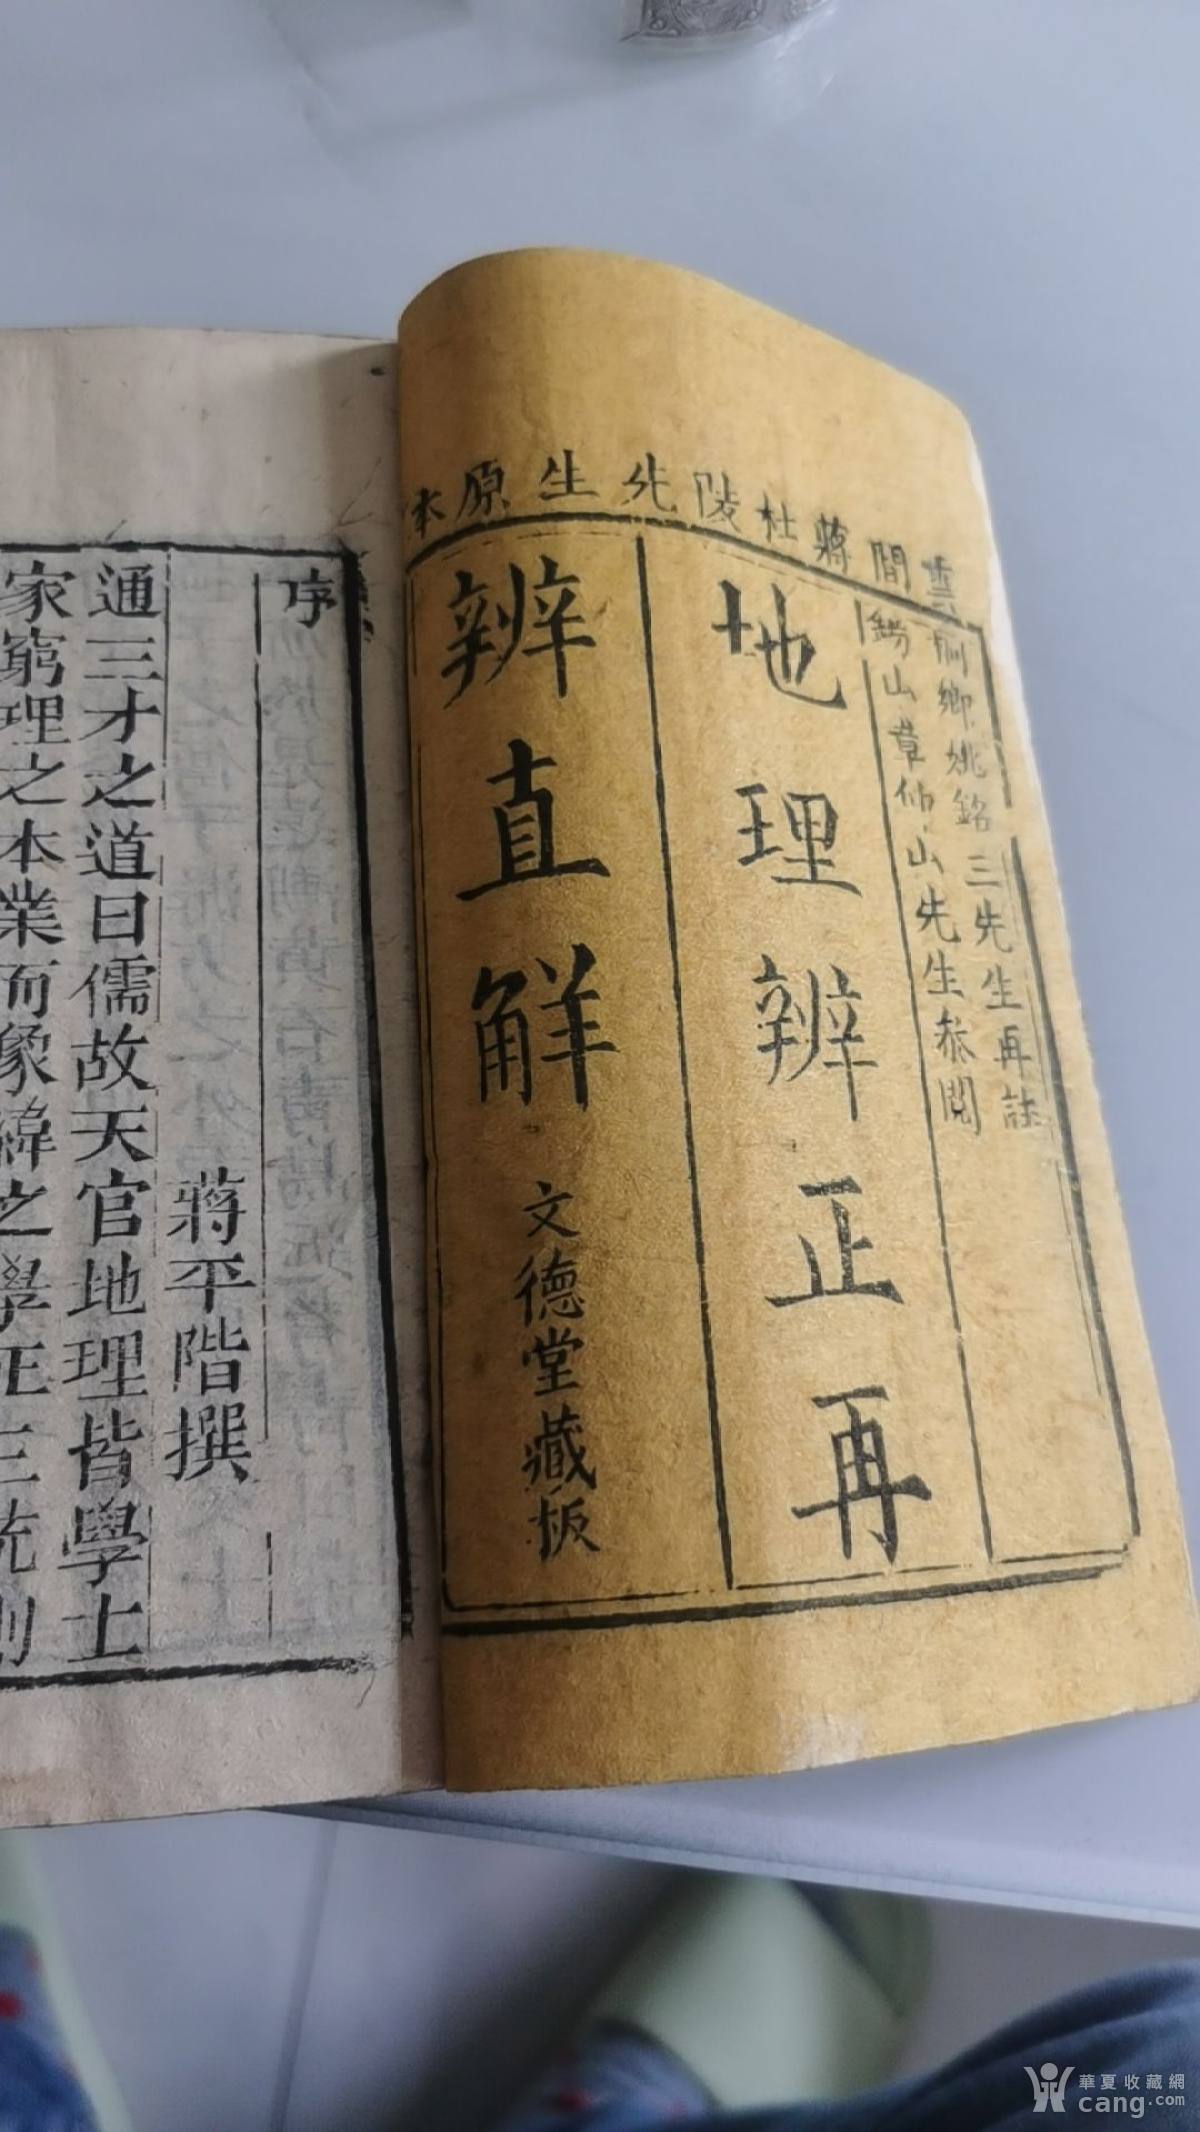 雲間蔣杜陵先生原本
桐鄉姚銘三先生再註
錫山章仲山先生叅閱
地理辨正再
辨直解
文德堂藏板
序
蔣平階撰
通三才之道曰儒故天官地理皆學士
家窮理之本業而象緯之學在三統則
華夏收藏網
cang.com